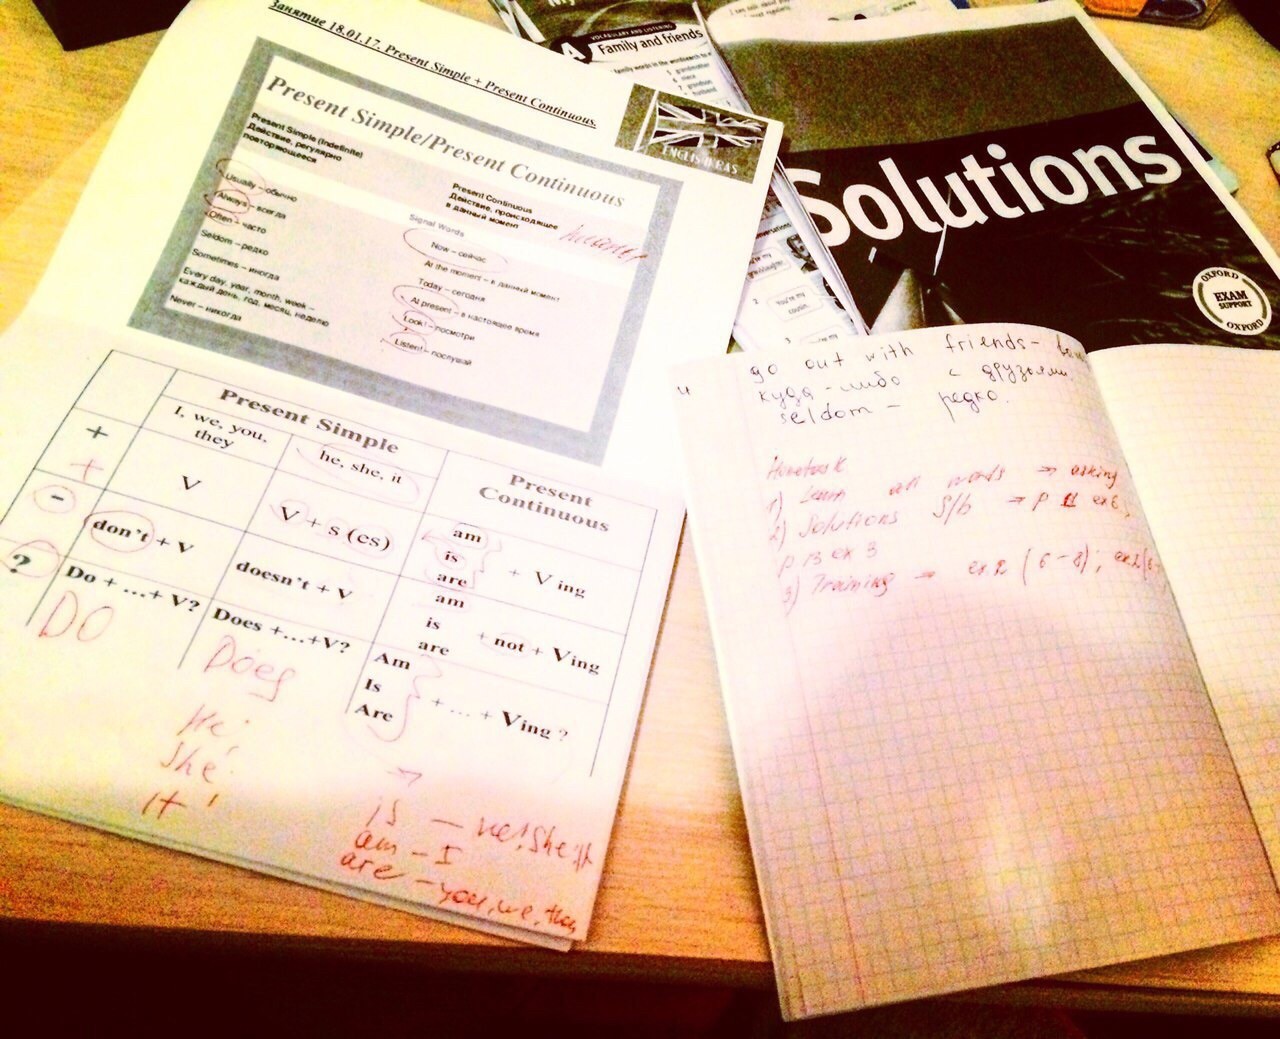 Занятие 18.01.17. Present Simple + Present Continuous.
Present Simple/Present Continuous
Present Simple (Indefinite)
Действие, регулярно
повторяющееся
Present Continuous
Действие, происходящее
в данный момент
Signal Words
Usually – обычно
Always – всегда
Often – часто
Seldom – редко
Sometimes – иногда
Every day, year, month, week –
каждый день, год, месяц, неделю
Never – никогда
Now – сейчас
At the moment – в данный момент
Today – сегодня
At present – в настоящее время
Look! – посмотри
Listen! – послушай
ENGLISH
Present Simple
Present Continuous
I, we, you, they
he, she, it
+
V
V + s (es)
am
is
are
+ V ing
+
-
don't + V
doesn't + V
am
is
are
+ not + Ving
?
Do + ...+ V?
Does +...+V?
Am
Is
Are
+ ... + Ving ?
DO
Does
He
She
It
is – he, she, it
am – I
are – you, we, they
A
VOCABULARY AND LISTENING
Family and friends
grandmother
niece
grandson
husband
You're my
cousin.
Solutions
OXFORD
EXAM
SUPPORT
OXFORD
go out with friends –
куда-либо с друзьями
seldom – редко.
Hometask
1) Learn all words → asking
2) Solutions S/b → p ex
p 13 ex 3
3) Training → ex.2 (6-8);